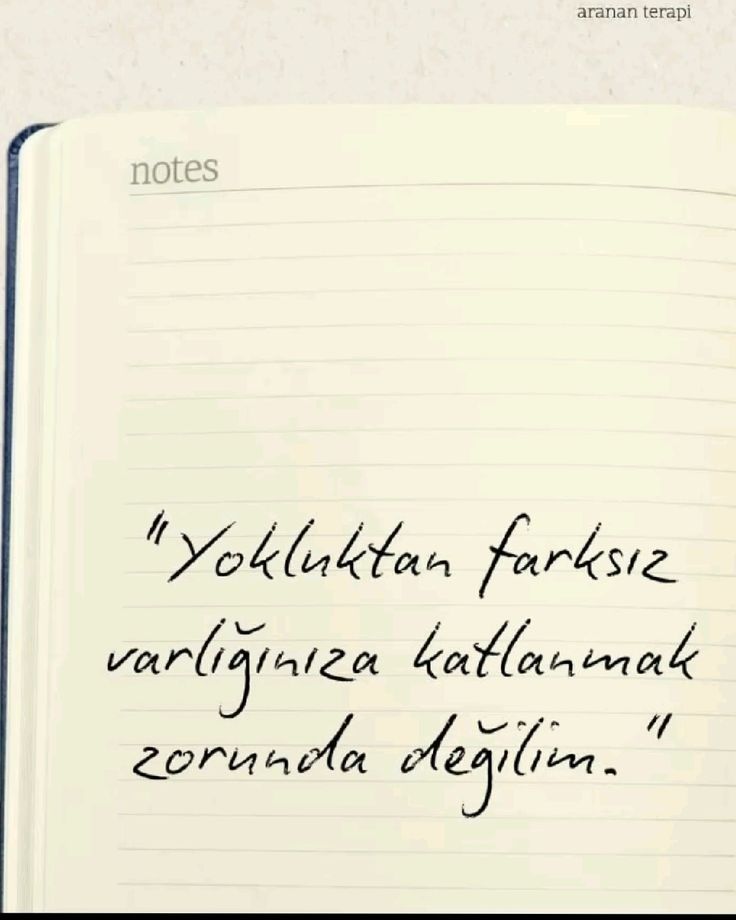 aranan terapi
notes
"Yokluktan farksız
varlığınıza katlanmak
zorunda değilim."